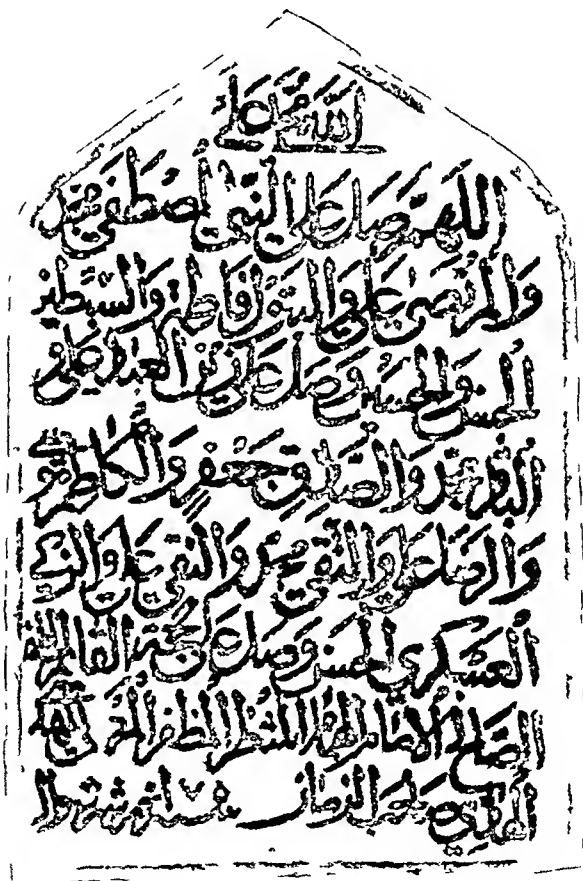 الله محمد علي
اللهم صل على النبي المصطفى محمد
والمرتضى علي والبتول فاطمة والسبطين
الحسن والحسين وصل على زين العباد علي و
الباقر محمد والصادق جعفر والكاظم موسى
والرضا علي والتقي محمد والنقي علي والزكي
العسكري الحسن وصل على الحجة القائم
الصالح الإمام المنتظر المظفر
صاحب الزمان